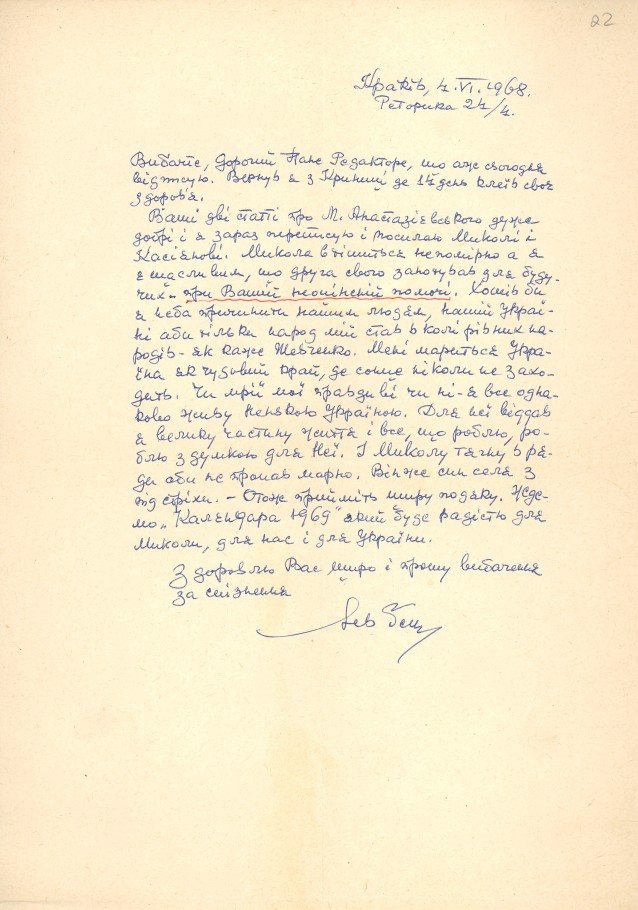 22
Краків, 4.VI.1968.
Реторика 24/4.
Вибачте, Дорогий Пане Редакторе, що аж сьогодня
відписую. Вернув я з Криниці де 14 день клеїв своє
здоров'я.
Ваші дві статті про М. Анастазієвського дуже
добрі і я зараз переписую і посилаю Миколі і
Касіянові. Микола втішиться непомірно а я
є щасливим, що друга свого занотував для буду-
чих - при Вашій неоцінскій помочі. Хотів би
я неба причинити нашим людям, нашій Украї-
ні аби тільки народ мій став в колі рівних на-
родів - як каже Шевченко. Мені мариться Укра-
їна як чудовий край, де сонце ніколи не захо-
дить. Чи мрії мої правдиві чи ні - я все одна-
ково живу Ненькою Україною. Для неї віддав
я велику частину життя і все, що роблю, ро-
блю з думкою для Неї. І Миколу тягну в ря-
ди аби не пропав марно. Він же син села з
під стріхи. - Отож прийміть щиру подяку. Жде-
мо „Календара 1969" який буде радістю для
Миколи, для нас і для України.
Здоровлю Вас щиро і прошу вибачення
за спізнення
Лев Ґец